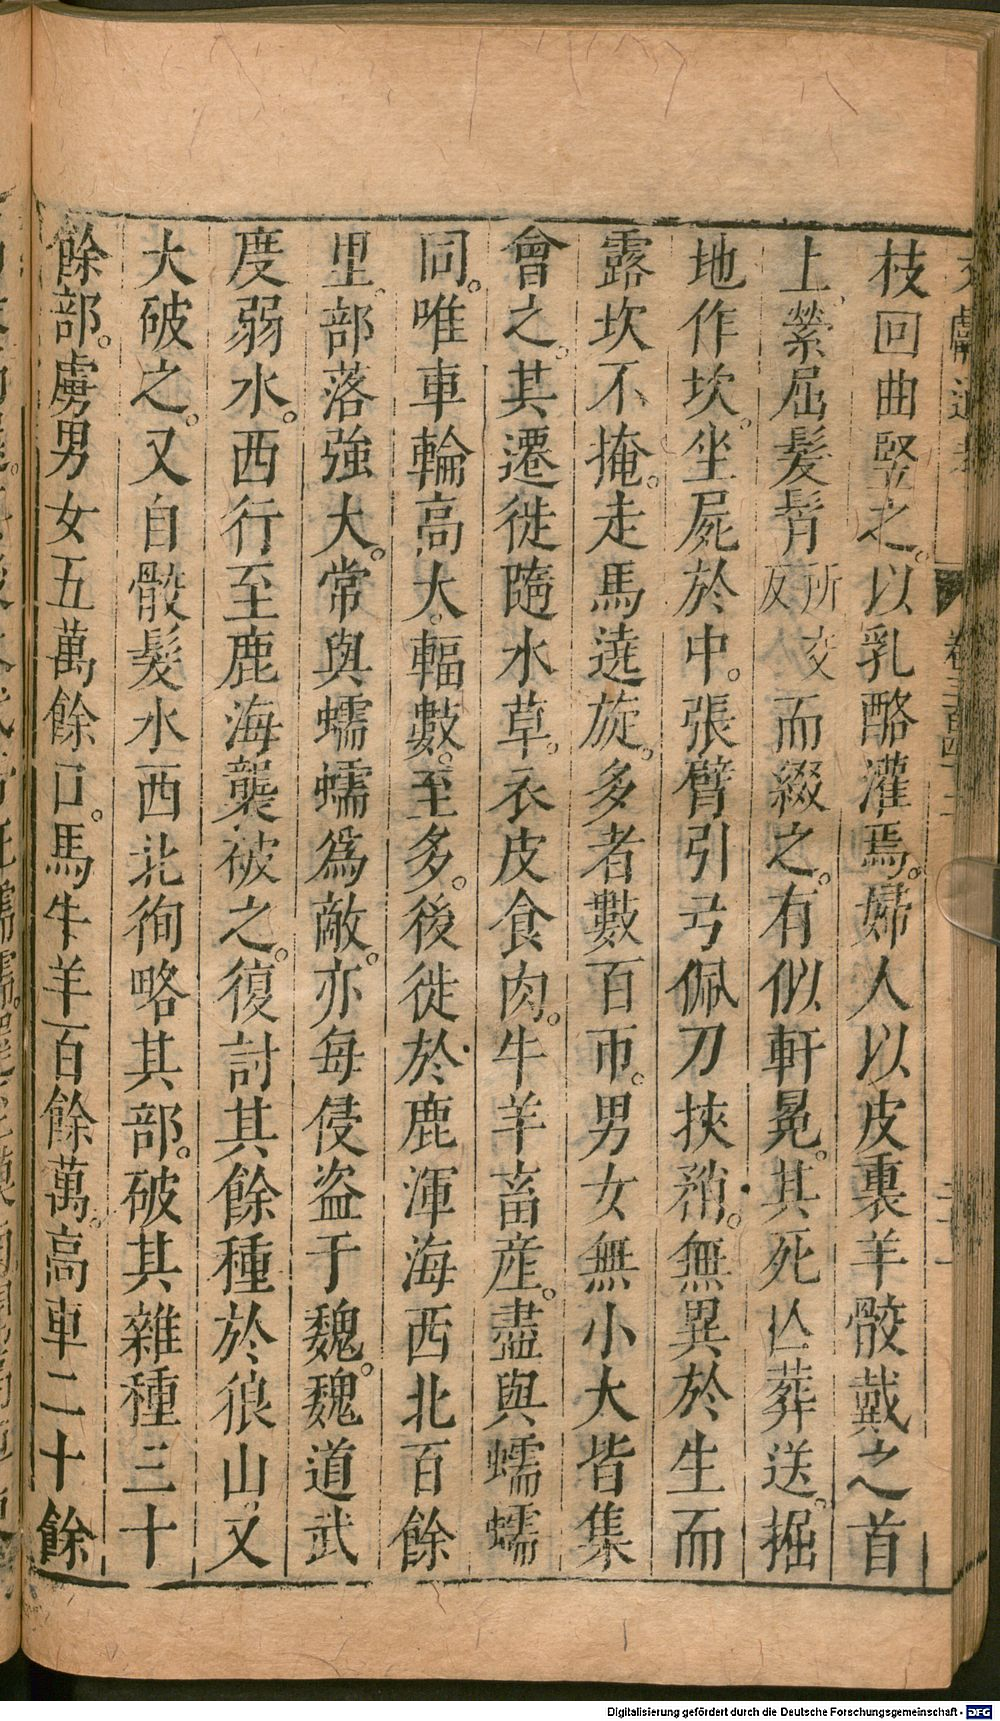 枝回曲竪之。以乳酪灌焉。婦人以皮裹羊骸戴之首
上縈屈髮髾所交反而綴之。有似軒冕。其死亾葬送。掘
地作坎。坐屍於中。張臂引弓佩刀挾矟。無異於生而
露坎不掩。走馬遶旋。多者數百帀。男女無小大皆集
會之。其遷徙隨水草。衣皮食肉。牛羊畜産。盡與蠕蠕
同。唯車輪高大。輻數至多。後徙於鹿渾海西北百餘
里。部落强大。常與蠕蠕爲敵。亦每侵盜于魏。魏道武
度弱水。西行至鹿海襲被之。復討其餘種於狼山。又
大破之。又自骸髮水西北徇略其部。破其雜種三十
餘部。虜男女五萬餘口。馬牛羊百餘萬。高車二十餘
Digitalisierung gefördert durch die Deutsche Forschungsgemeinschaft - DFG